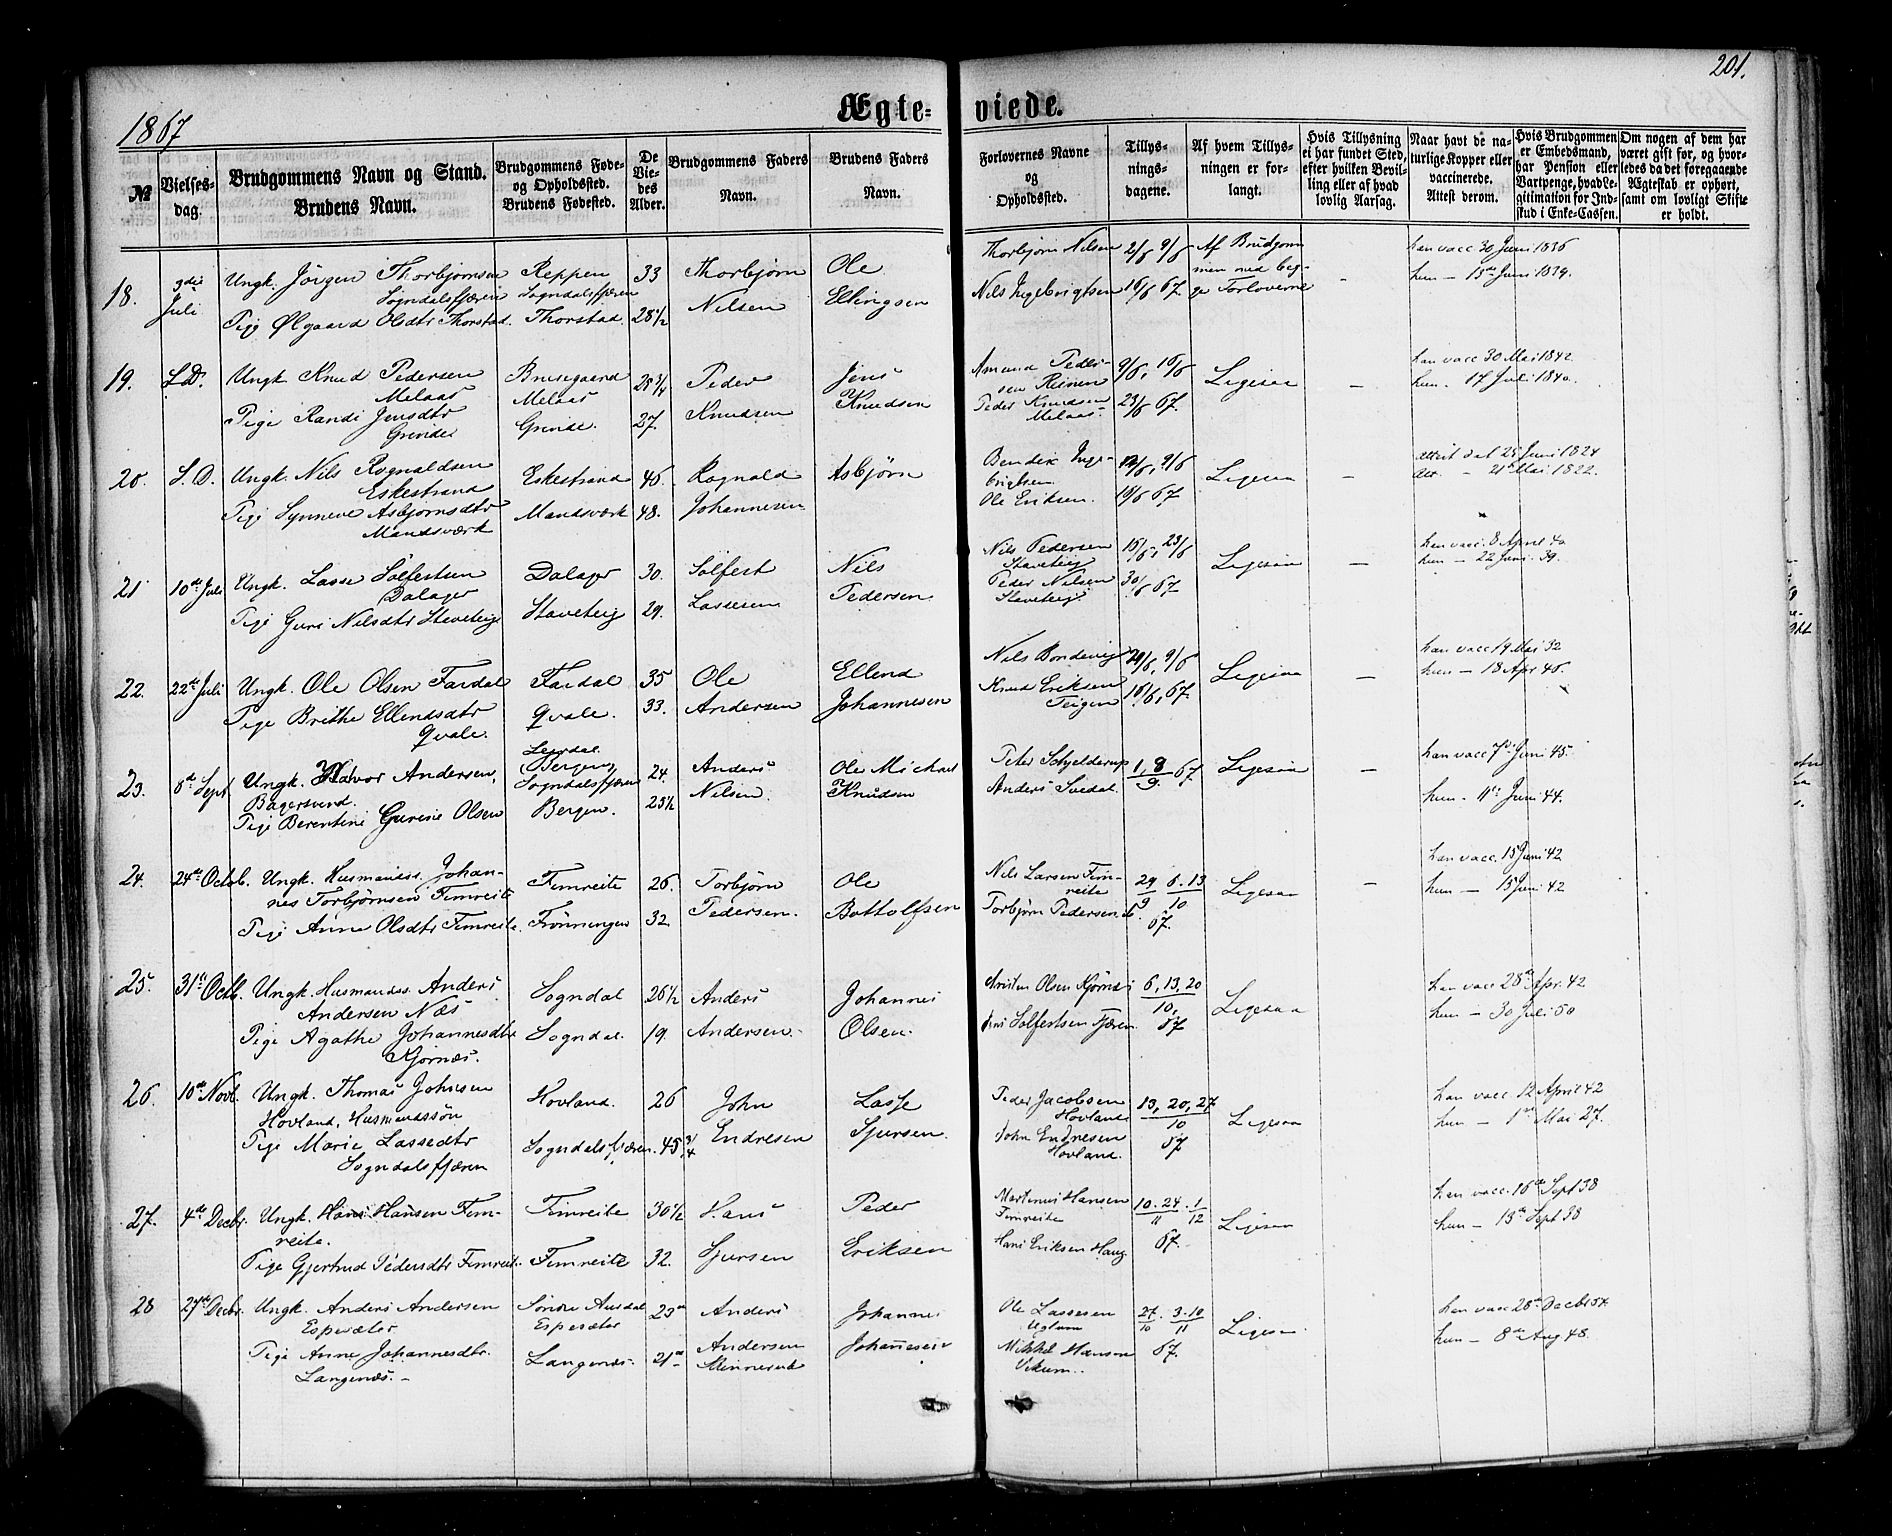 201.
1867
Ægte-viede.
№
Vielses-dag.
Brudgommens Navn og Stand.
Brudens Navn.
Brudgommens Føde- og Opholdssted.
Brudens Fødested.
De Viedes Alder.
Brudgommens Faders Navn.
Brudens Faders Navn.
Forlovernes Navne og Opholdssted.
Tillysningsdagene.
Af hvem Tillysningen er forlangt.
Hvis Tillysning ei har fundet Sted, efter hvilken Bevilling eller af hvad lovlig Aarsag.
Naar havt de naturlige Kopper eller vaccinerede. Attest derom.
Hvis Brudgommen er Embedsmand, har Pension eller Vartpenge, hvad Legitimation for Indskud i Enke-Cassen.
Om nogen af dem har været gift før, og hvorledes da det foregaaende Ægteskab er ophørt, samt om lovligt Skifte er holdt.
18. 3die Juli Ungk. Jörgen Thorbjørnsen Sogndalsfjæren Reppen Sogndalsfjæren 33 Thorbjørn Nilsen Ole Ellingsen Thorbjørn Nilsen 2/6 9/6 Af Brudgommen med begge Forloverne - han vacc 30 Juni 1836
Pige Ølgaard Olsdtr Thorstad. Thorstad. 28 1/2 Nils Ingebrigtsen 16/6 67. hun - 15de Juni 1839.
19. S.D. Ungk Knud Pedersen Melaas Melaas 25 3/4 Peder Knudsen Jens Knudsen Amund Pedersen 9/6, 16/6 Ligesaa - han vacc 30 Mai 1842
Pige Randi Jensdtr Grinde Grinde. 27. Peder Knudsen Melaas. 23/6 67. hun. 17 Juli 1840.
20. S.D. Ungk. Nils Rognaldsen Eskestrand Eskestrand 46. Rognald Johannesen Asbjørn Bendix Ingebrigtsen 9/6 Ligesaa -
Pige Synneve Asbjørnsdtr Mandsværk Mandsværk 48. Ole Eriksen. 16/6 67. 21de Mai 1822.
21 10de Juli Ungk. Lasse Solfestsen Dalager Dalager 30. Solfest Lassesen Nils Pedersen Nils Pedersen Staveteig 16/6, 23/6 Ligesaa - han vacc. 8 April 40
Pige Guri Nilsdtr Staveteig Staveteig 29. Peder Nilsen Staveteig 30/6 67 hun - 22 Juni 39.
22. 22de Juli Ungk. Ole Olsen Fardal Fardal 35 Ole Andersen Ellend Johannesen Nils Bondevig 9/6 Ligesaa - han vacc 19 Mai 32
Pige Brithe Ellendsdtr Qvale. Qvale. 33. Knud Eriksen Teigen 16/6, 67. hun - 18 Apr 46.
23. 8de Sept Ungk. Halvor Andersen, Bagersvend. Leirdal Bergen, Sogndalsfjæren 24. Anders Nilsen. Ole Michael Knudsen Peter Schjelderup 1, 8/9. 67. Ligesaa - han vacc 7de Juni 45.
Pige Berentine Gurine Olsen Bergen. 23 1/2 Anders Svedal. hun - 11te Juni 44.
24. 24de Octob. Ungk. Husmandss. Johannes Torbjørnsen Fimreite Fimreite 26. Torbjørn Pedersen. Ole Bottolfsen Nils Larsen Fimreite 29/9 6. 13/10 Ligesaa - han vacc. 15 Juni 42
Pige Anne Olsdtr Fimreite. Frønningen 32 Torbjørn Pedersen 67. hun - 15 Juni 42
25. 31te Octb. Ungk. Husmandss. Anders Andersen Næs Sogndal 26 1/2 Anders Andersen. Johannes Olsen. Olsen Kjørnæs 6, 13, 20/10, Ligesaa han vacc 28de Apr. 42
Pige Agathe Johannesdtr Kjørnæs. Sogndal. 19. Solfestsen Fjæren 67 hun - 30 Juli 50
26. 10de Novb. Ungk. Thomas Johnsen Hovland, Husmandssøn Hovland. 26 John Endresen Lasse Sjursen. Peder Jacobsen Hovland 13, 20, 27/10 Ligesaa han vacc 12 April 42
Pige Marie Lassedtr Sogndalsfjæren Sogndalsfjæren. 45 3/4 John Endresen Hovland. 67 hun - 1de Mai 27.
27. 4de Decbr. Ungk. Hans Hansen Fimreite. Fimreite 30 1/2 Hans Sjursen Peder Eriksen Martinus Hansen Fimreite 10. 24/11. 1/12 Ligesaa han vacc. 16de Sept 38
Pige Gjertrud Pedersdtr Fimreite. Fimreite 32. Hans Eriksen Haug 67. hun - 13de Sept 38
28 27de Decbr. Ungk. Anders Andersen Espesæter Søndre Aurdal Espesæter 23 Anders Andersen Johannes Johannesen Ole Lassesen Uglum 27/10. 3. 10/11 Ligesaa han vacc 28de Decbr 54
Pige Anne Johannesdtr. Langenæs. - Langenæs. 21 Mikkel Hansen Vikum.. 67. hun - 8de Aug 48.